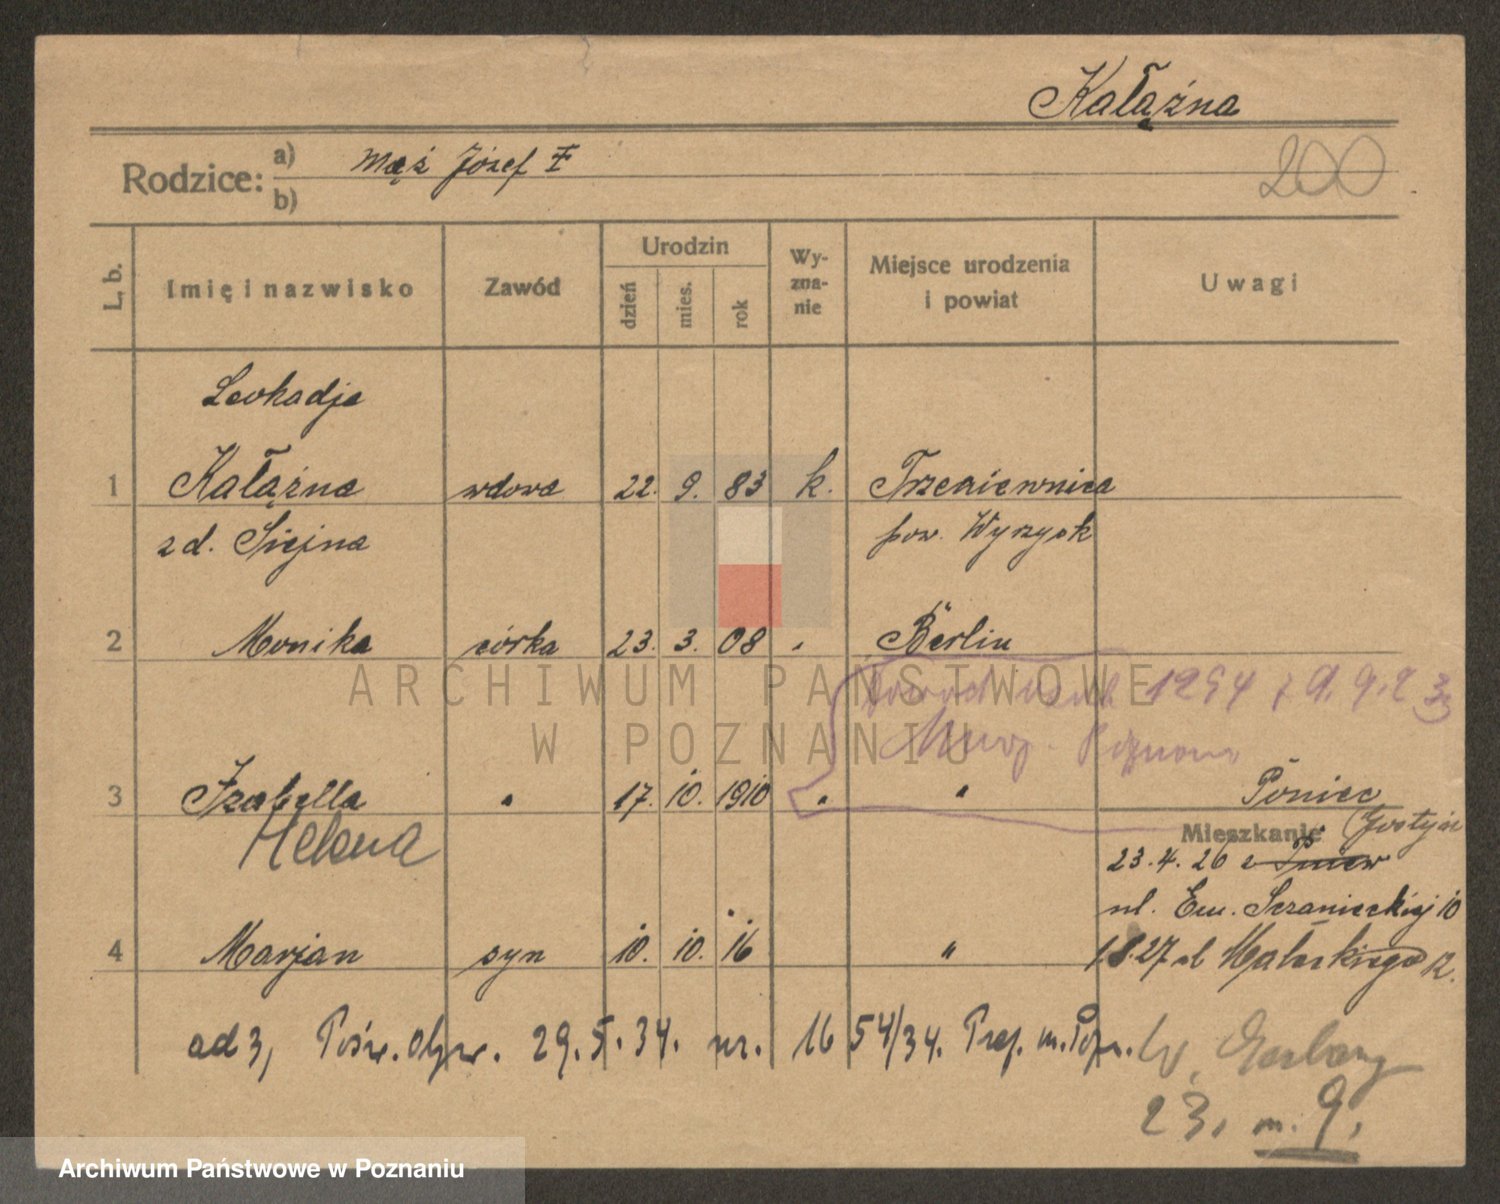 Kałążna
Rodzice: a) mąż Józef F
b)
200
L. b.
Imię i nazwisko
Zawód
Urodzin
dzień mies. rok
Wy-
zna-
nie
Miejsce urodzenia
i powiat
Uwagi
Leokadja
1 Kałążna wdowa 22. 9. 83 k. Trzeciewnica
z d. Siejna pow. Wyrzysk
2 Monika córka 23. 3. 08 " Berlin
1254 9.9.2
3 Izabella " 17. 10. 1910 " " Poniec
Helena
Mieszkanie
23.4.26 z
ul. Em. Sczanieckiej 10
4 Marjan syn 10. 10. 16 "
1.8.27 ul 12.
ad 3, Pośw. obyw. 29.5.34. nr. 1654/34. Prez. m. Pozn.
W. Garbary
23. m. 9.
ARCHIWUM PAŃSTWOWE
W POZNANIU
Archiwum Państwowe w Poznaniu